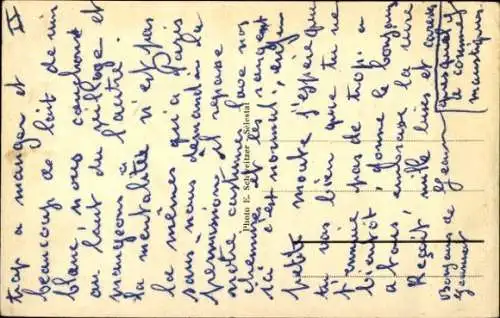 IV
trop a manger et
beaucoup de lait de un
blanc! nous couchons
au bout du village et
mangeons à l'autre.
La mentalité n'est pas
la mêmes qu'a Paris
sans nous demander la
permission, il repasse
notre costumes, lave nos
chemises et les rangent
ici c'est normal!,
petite moche j'espère que
tu vas bien que tu ne
t'ennuie pas de trop: a
bientôt, donne le bonjour
a tous embrasse la
Reçoit mille bises et caresses
de Jean
Bonjour
Jeannot
auquel
le connait
Photo E. Schweitzer - Sélestat